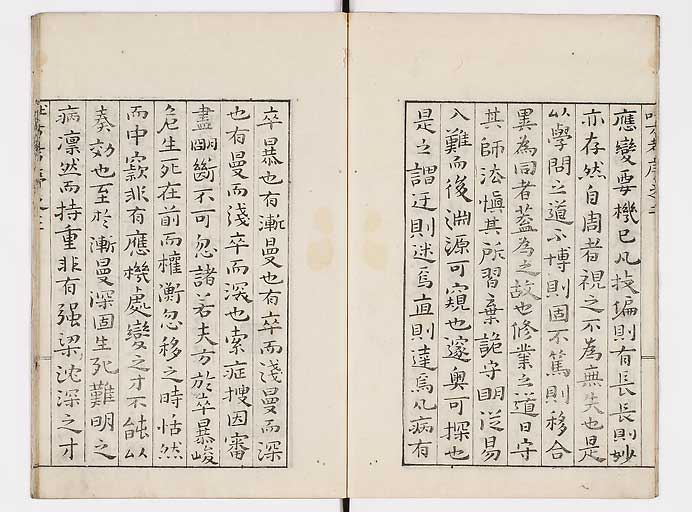 應變要機已凡技偏則有長長則妙
亦存然自周者視之不為無失也是
以學問之道不博則固不篤則移合
異為同者蓋為之故也修業之道曰守
其師法慎其所習棄詭守明從易
入難而後淵源可窺也邃奧可探也
是之謂迂則迷焉直則達焉凡病有
卒暴也有漸曼也有卒而淺曼而深
也有曼而淺卒而深也索症搜因審
盡明斷不可忽諸若夫方於卒暴峻
危生死在前而權衡忽移之時恬然
而中窾非有應機處變之才不能以
奏効也至於漸曼深固生死難明之
病凛然而持重非有强梁沈深之才